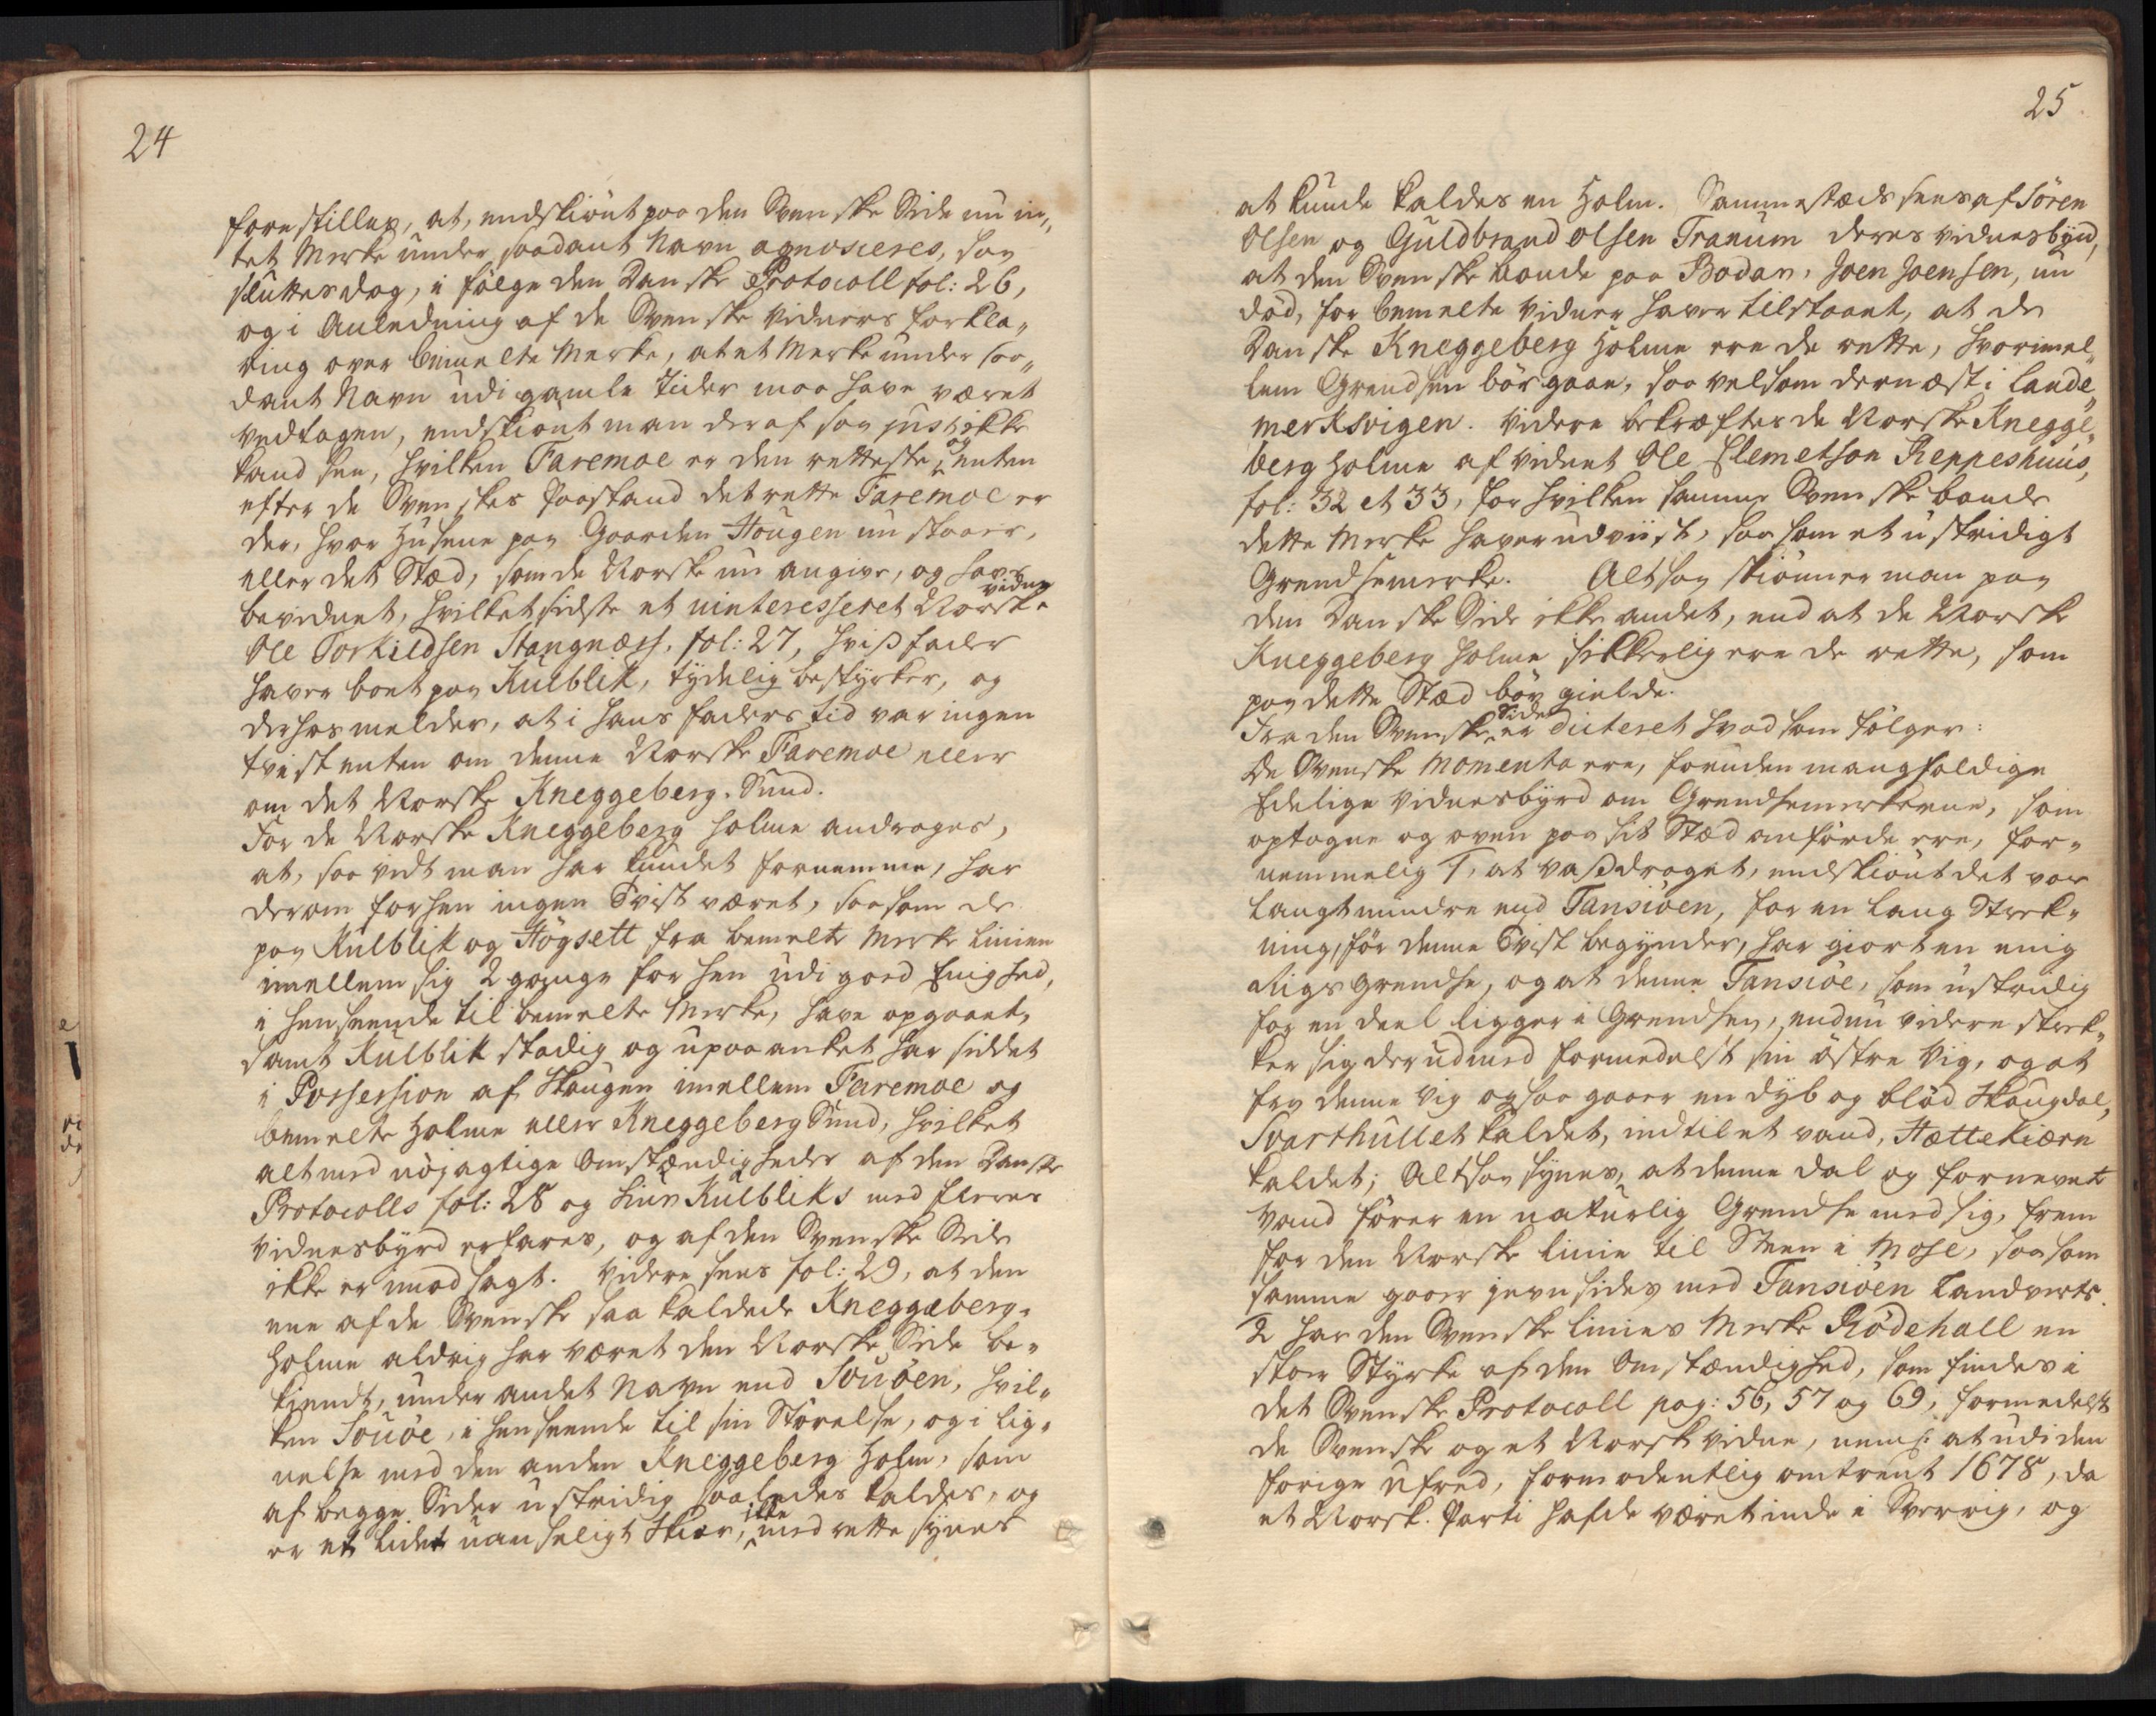 24
forestilles, at, endskiönt paa den Svenske Side nu in„
tet Merke under saadant Navn agnosceres, saa
sluttes dog, i fölge den Danske Protocoll fol: 26,
og i Anledning af de Svenske Vidners forkla„
ring over bemelte Merke, at et Merke under saa„
dant Navn udi gamle Tider maa have været
vedtagen, endskiönt man deraf saa just ikke
kand see, hvilken Faremoe er den retteste, enten
efter de Svenskes Paastand det rette Faremoe er
der, hvor Husene paa Gaarden Hougen nu staaer,
eller det Stæd, som de Norske nu angive, og have
bevidnet, hvilket sidste et uinteresseret Norsk vidne
Ole Torkildsen Stangnæss, fol: 27, hvis fader
haver boet paa Kulblik, tydelig bestyrker, og
derhos melder, at i hans faders tid var ingen
tvist enten om denne Norske Faremoe eller
om det Norske Kneggeberg-Sund.
For de Norske Kneggeberg holme androges,
at, saa vidt man har kundet fornemme, har
derom forhen ingen Tvist været, saasom de
paa Kulblik og Högsett fra bemelte Merke Linien
imellem sig 2 gange forhen udi goed Enighed,
i henseende til bemelte Merke, have opgaaet,
samt Kulblik stadig og upaaanket har siddet
i Possession af Skougen imellem Faremoe og
bemelte Holme eller Kneggeberg Sund, hvilket
alt med nöjagtige Omstændigheder af den Danske
Protocolls fol: 28 og Siur Kulbliks med fleeres
vidnesbyrd erfares, og af den Svenske Side
ikke er imodsagt. Videre sees fol: 29, at den
ene af de Svenske saa kaldede Kneggæberg-
Holme aldrig har været den Norske Side be-
kiendt, under andet Navn end Souöen, hvil„
ken Souöe, i henseende til sin Störelse, og i lig-
nelse med den anden Kneggeberg Holm, som
af begge Sider ustridig saaledes kaldes, og
er et lidet uanseligt Skiær, ikke med rette synes
25
at kunde kaldes en Holm. Sammestæds sees af Sören
Olsen og Guldbrand olsen Tranum deres vidnesbyrd,
at den Svenske bonde paa Bodan, Joen Joensen, nu
död, for bemelte vidner haver tilstaaet, at de
Danske Kneggeberg Holme ere de rette, hvorimel„
lem Grendsen bör gaae, saa vel som dernæst i Lande„
merksvigen. Videre bekræftes de Norske Knegge„
berg Holme af vidnet Ole Clemetson Keppeshuus,
fol: 32 et 33, for hvilken samme Svenske bonde
dette Merke haver udviist, saasom et ustridigt
Grendsemerke. Altsaa skiönner man paa
den Danske Side ikke andet, end at de Norske
Kneggeberg Holme sikkerlig ere de rette, som
paa dette Stæd bör gielde.
Fra den Svenske Side er dicteret hvad som fölger:
De Svenske Momenta ere, foruden mangfoldige
Edelige Vidnesbyrd om Grendsemerkerne, som
optagne og oven paa sit Stæd anförde ere, for„
nemmelig 1, at vaßdraget, endskiönt det var
langt mindre end Tansiöen, for en lang Strek„
ning, för denne Tvist begynder, har giort en enig
Rigs Grendse, og at denne Tansiöe, som ustridig
for en deel ligger i Grendsen, endnu videre strek„
ker sig derudmed formedelst sin östre Vig, og at
fra denne Vig ogsaa gaaer en dyb og blöd Skougdal,
Svarthullet kaldet, indtil et vand, Hættekiærn
kaldet; Altsaa synes, at denne dal og fornevnt
vand förer en naturlig Grendse med sig, frem
for den Norske linie til Steen i Mose, saasom
samme gaaer jevnsides med Tansiöen Landverts.
2 har den Svenske linies Merke Rödehall en
stor Styrke af den Omstændighed, som findes i
det Svenske Protocoll pag: 56, 57 og 69, formedelst
de Svenske og et Norsk vidne, neml: at udi den
forige Ufred, formodentlig omtrent 1678, da
et Norsk Parti hafde været inde i Sverrig, og